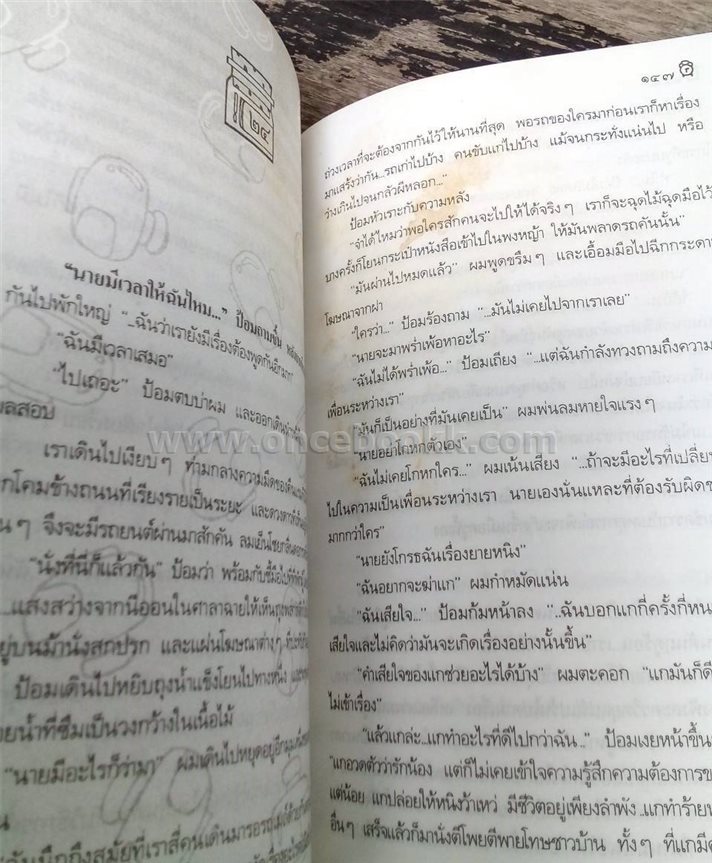 ๒๔
"นายมีเวลาให้ฉันไหม..." ป้อมถามขึ้น
กันไปพักใหญ่ "...ฉันว่าเรายังมีเรื่องต้องพูดกันอีกมาก"
"ฉันมีเวลาเสมอ"
"ไปเถอะ" ป้อมตบบ่าผม และออกเดิน
ผลสอบ
เราเดินไปเงียบๆ ท่ามกลางความมืดของ
กโคมข้างถนนที่เรียงรายเป็นระยะ และดวงดาว
นๆ จึงจะมีรถยนต์ผ่านมาสักคัน ลมเย็นโชยกลิ่น
"นั่งที่นี่ก็แล้วกัน" ป้อมว่า พร้อมกับชี้มือไปที่
...แสงสว่างจากนีออนในศาลาฉายให้เห็นถุงพลาสติก
ยู่บนม้านั่งสกปรก และแผ่นโฆษณาต่างๆ
ป้อมเดินไปหยิบถุงน้ำแข็งโยนไปทางหนึ่ง และ
ยน้ำที่ซึมเป็นวงกว้างในเนื้อไม้
"นายมีอะไรก็ว่ามา" ผมเดินไปหยุดอยู่อีกมุมหนึ่ง
น
ฉันนึกถึงสมัยที่เราสี่คนเดินมารอรถเมล์ด้วยกัน
๑๔๗
ช่วงเวลาที่จะต้องจากกันไว้ให้นานที่สุด พอรถของใครมาก่อนเราก็หาเรื่อง
มาแสร้งว่ากัน...รถเก่าไปบ้าง คนขับแก่ไปบ้าง แม้จนกระทั่งแน่นไป หรือ
ว่างเกินไปจนกลัวผีหลอก..."
ป้อมหัวเราะกับความหลัง
"จำได้ไหมว่าพอใครสักคนจะไปให้ได้จริงๆ เราก็จะฉุดไม้ฉุดมือไว้
บางครั้งก็โยนกระเป๋าหนังสือเข้าไปในพงหญ้า ให้มันพลาดรถคันนั้น"
"มันผ่านไปหมดแล้ว" ผมพูดขรึมๆ และเอื้อมมือไปฉีกกระดาษ
โฆษณาจากฝา
"ใครว่า..." ป้อมร้องถาม "...มันไม่เคยไปจากเราเลย"
"นายจะมาพร่ำเพ้อหาอะไร"
"ฉันไม่ได้พร่ำเพ้อ..." ป้อมเถียง "...แต่ฉันกำลังทวงถามถึงความ
เพื่อนระหว่างเรา"
"มันก็เป็นอย่างที่มันเคยเป็น" ผมพ่นลมหายใจแรงๆ
"นายอย่าโกหกตัวเอง"
"ฉันไม่เคยโกหกใคร..." ผมเน้นเสียง "...ถ้าจะมีอะไรที่เปลี่ยน
ไปในความเป็นเพื่อนระหว่างเรา นายเองนั่นแหละที่ต้องรับผิดช
มากกว่าใคร"
"นายยังโกรธฉันเรื่องยายหนิง"
"ฉันอยากจะฆ่าแก" ผมกำหมัดแน่น
"ฉันเสียใจ..." ป้อมก้มหน้าลง "...ฉันบอกแกกี่ครั้งกี่หน
เสียใจและไม่คิดว่ามันจะเกิดเรื่องอย่างนั้นขึ้น"
"คำเสียใจของแกช่วยอะไรได้บ้าง" ผมตะคอก "แกมันก็ดี
ไม่เข้าเรื่อง"
"แล้วแกล่ะ...แกทำอะไรที่ดีไปกว่าฉัน..." ป้อมเงยหน้าขึ้น
"แกอวดตัวว่ารักน้อง แต่ก็ไม่เคยเข้าใจความรู้สึกความต้องการข
แต่น้อย แกปล่อยให้หนิงว้าเหว่ มีชีวิตอยู่เพียงลำพัง...แกทำร้าย
อื่นๆ เสร็จแล้วก็มานั่งตีโพยตีพายโทษชาวบ้าน ทั้งๆ ที่แกมี
www.oncebookk.com